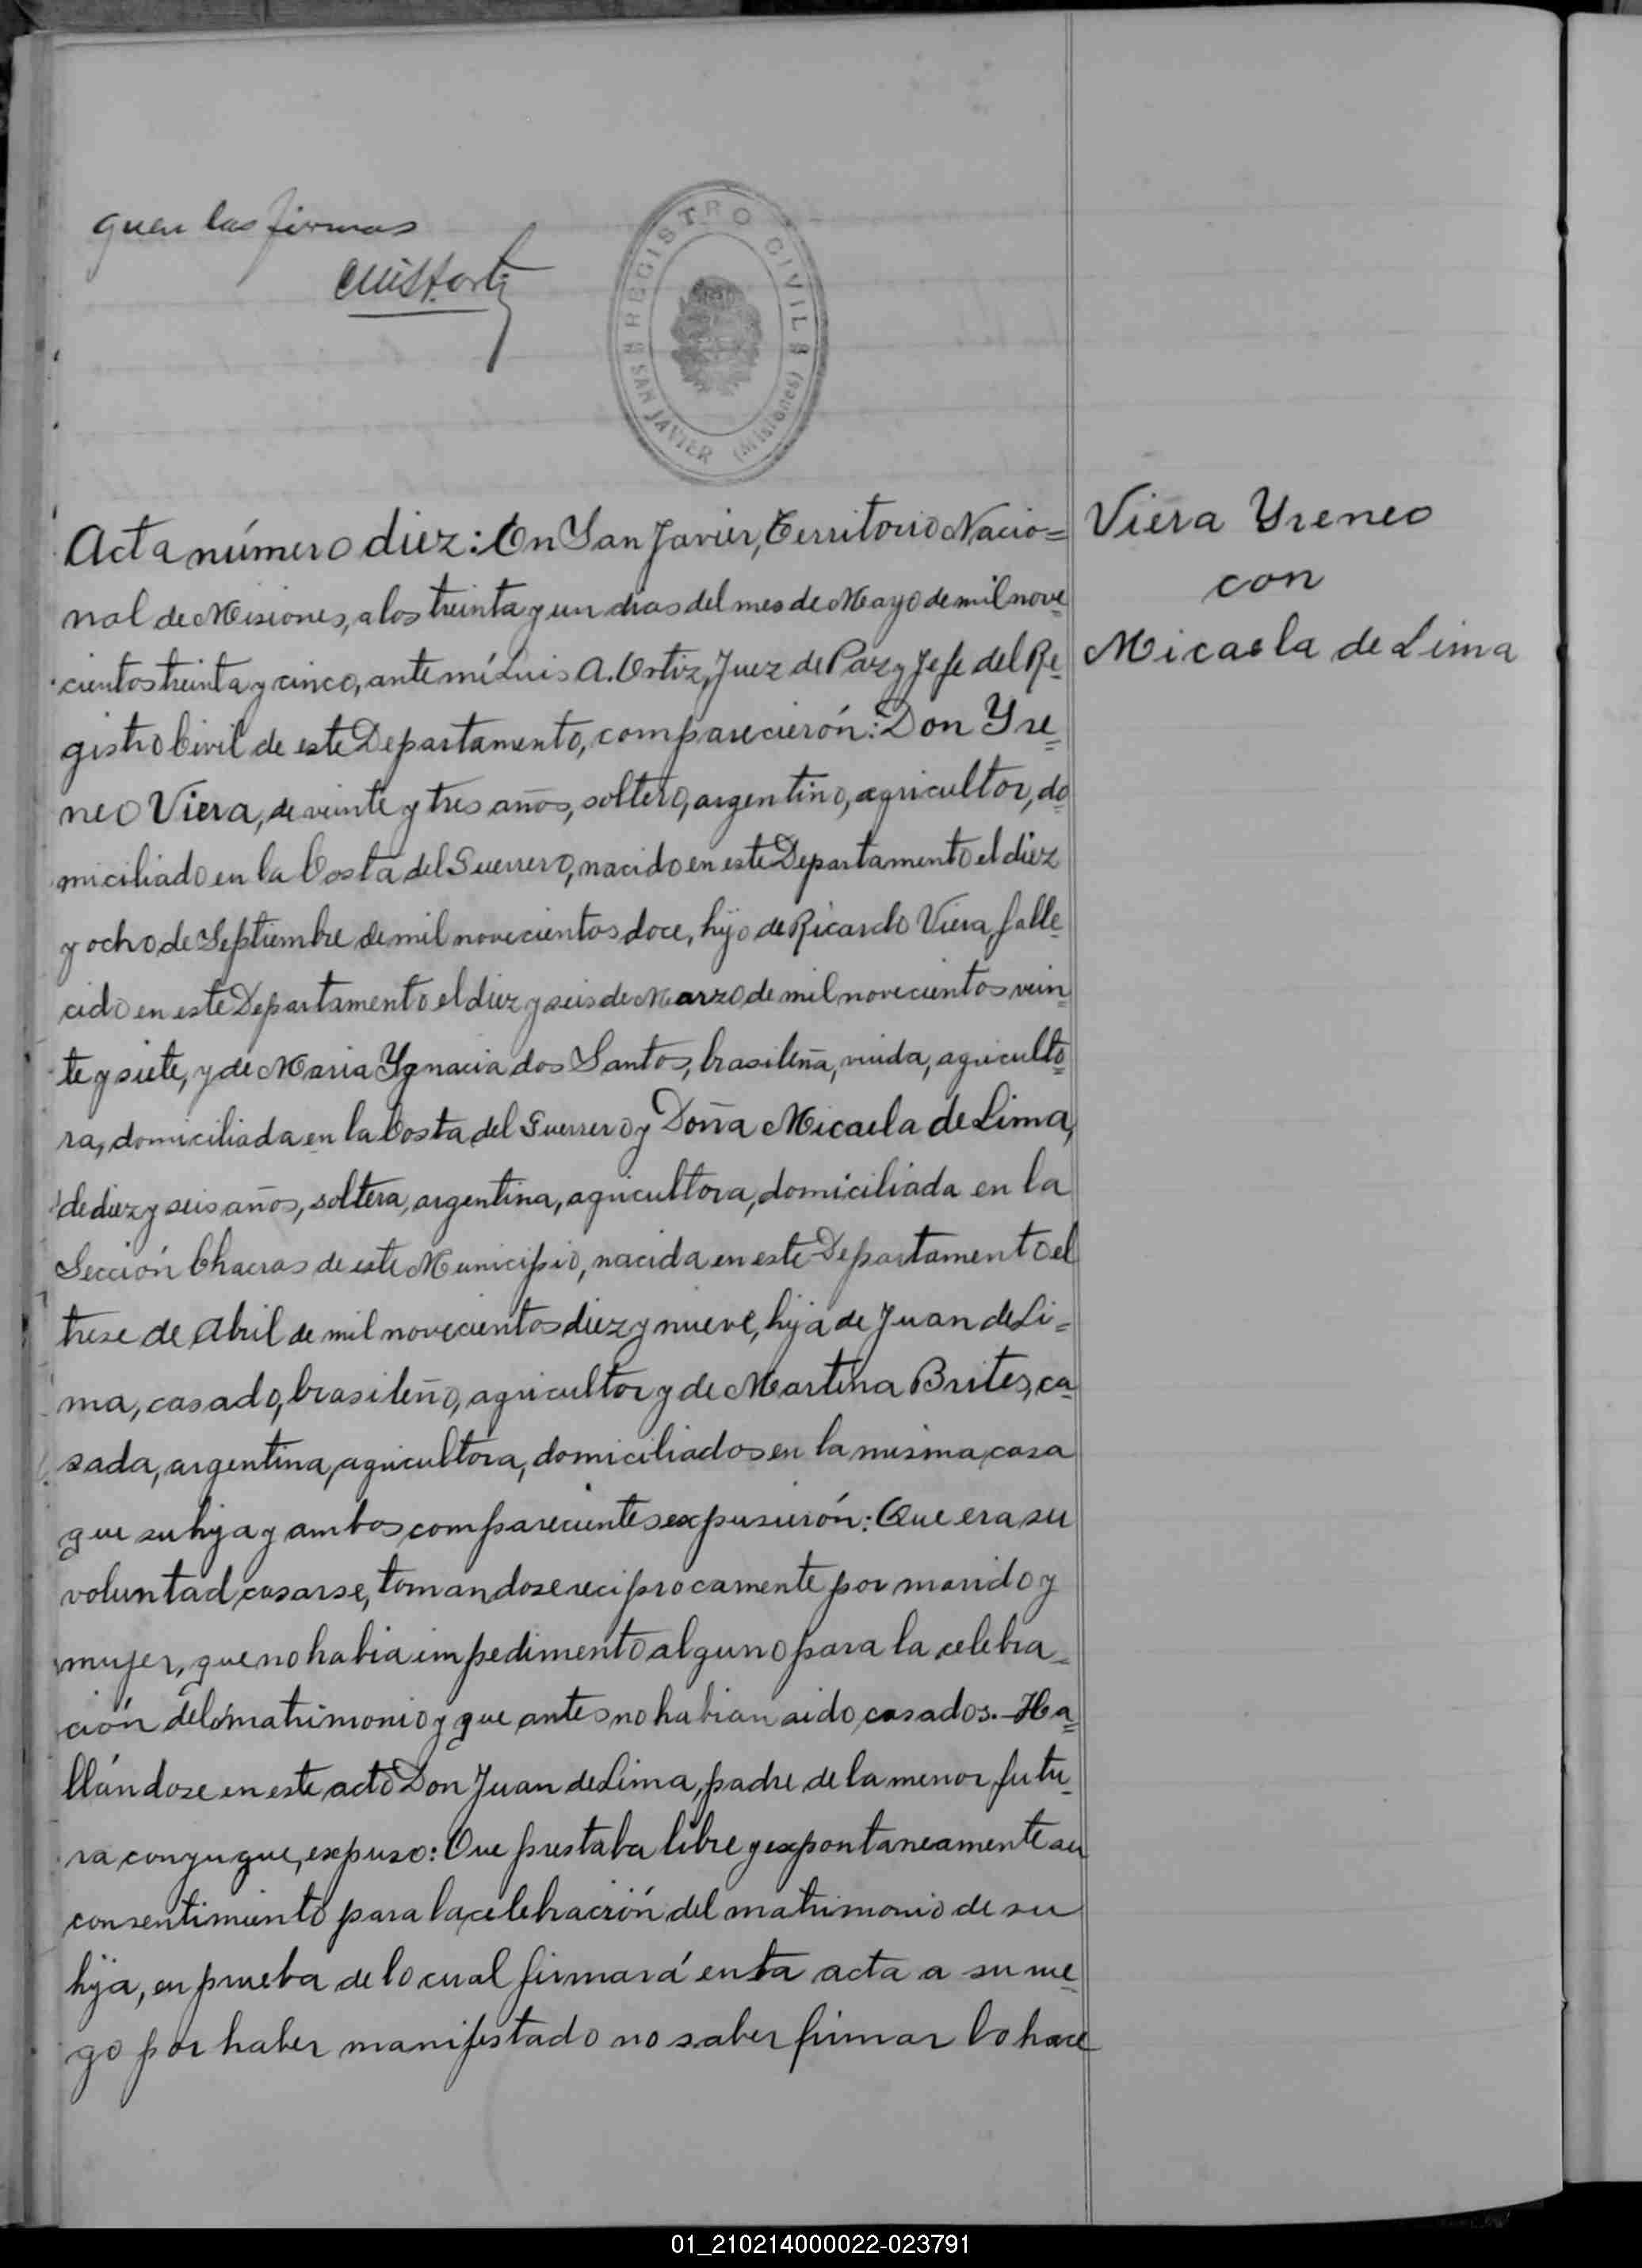 guen las firmas
Luis A. Ortiz
REGISTRO CIVIL
SAN JAVIER (Misiones)
Acta número diez: En San Javier, Territorio Nacio=
nal de Misiones, a los treinta y un dias del mes de Mayo de mil nove=
cientos treinta y cinco, ante mí Luis A. Ortiz, Juez de Paz y Jefe del Re=
gistro Civil de este Departamento, comparecierón: Don Yre=
neo Viera, de veinte y tres años, soltero, argentino, agricultor, do=
miciliado en la Costa del Guerrero, nacido en este Departamento el diez
y ocho de Septiembre de mil novecientos doce, hijo de Ricardo Viera, falle=
cido en este Departamento el diez y seis de Marzo de mil novecientos vein=
te y siete, y de Maria Ygnacia dos Santos, brasileña, viuda, agriculto=
ra, domiciliada en la Costa del Guerrero y Doña Micaela de Lima,
de diez y seis años, soltera, argentina, agricultora, domiciliada en la
Sección Chacras de este Municipio, nacida en este Departamento el
trese de Abril de mil novecientos diez y nueve, hija de Juan de Li=
ma, casado, brasileño, agricultor y de Martina Brites, ca=
sada, argentina, agricultora, domiciliados en la misma casa
que su hija y ambos comparecientes expusierón: Que era su
voluntad casarse, tomandose reciprocamente por marido y
mujer, que no habia impedimento alguno para la celebra=
ción del matrimonio y que antes no habian sido casados.- Ha=
llándose en este acto Don Juan de Lima, padre de la menor futu=
ra conyugue, expuso: Que prestaba libre y expontaneamente su
consentimiento para la celebración del matrimonio de su
hija, en prueba de lo cual firmará ensta acta a su rue=
go por haber manifestado no saber firmar lo hace
Viera Yreneo
con
Micaela de Lima
01_210214000022-023791